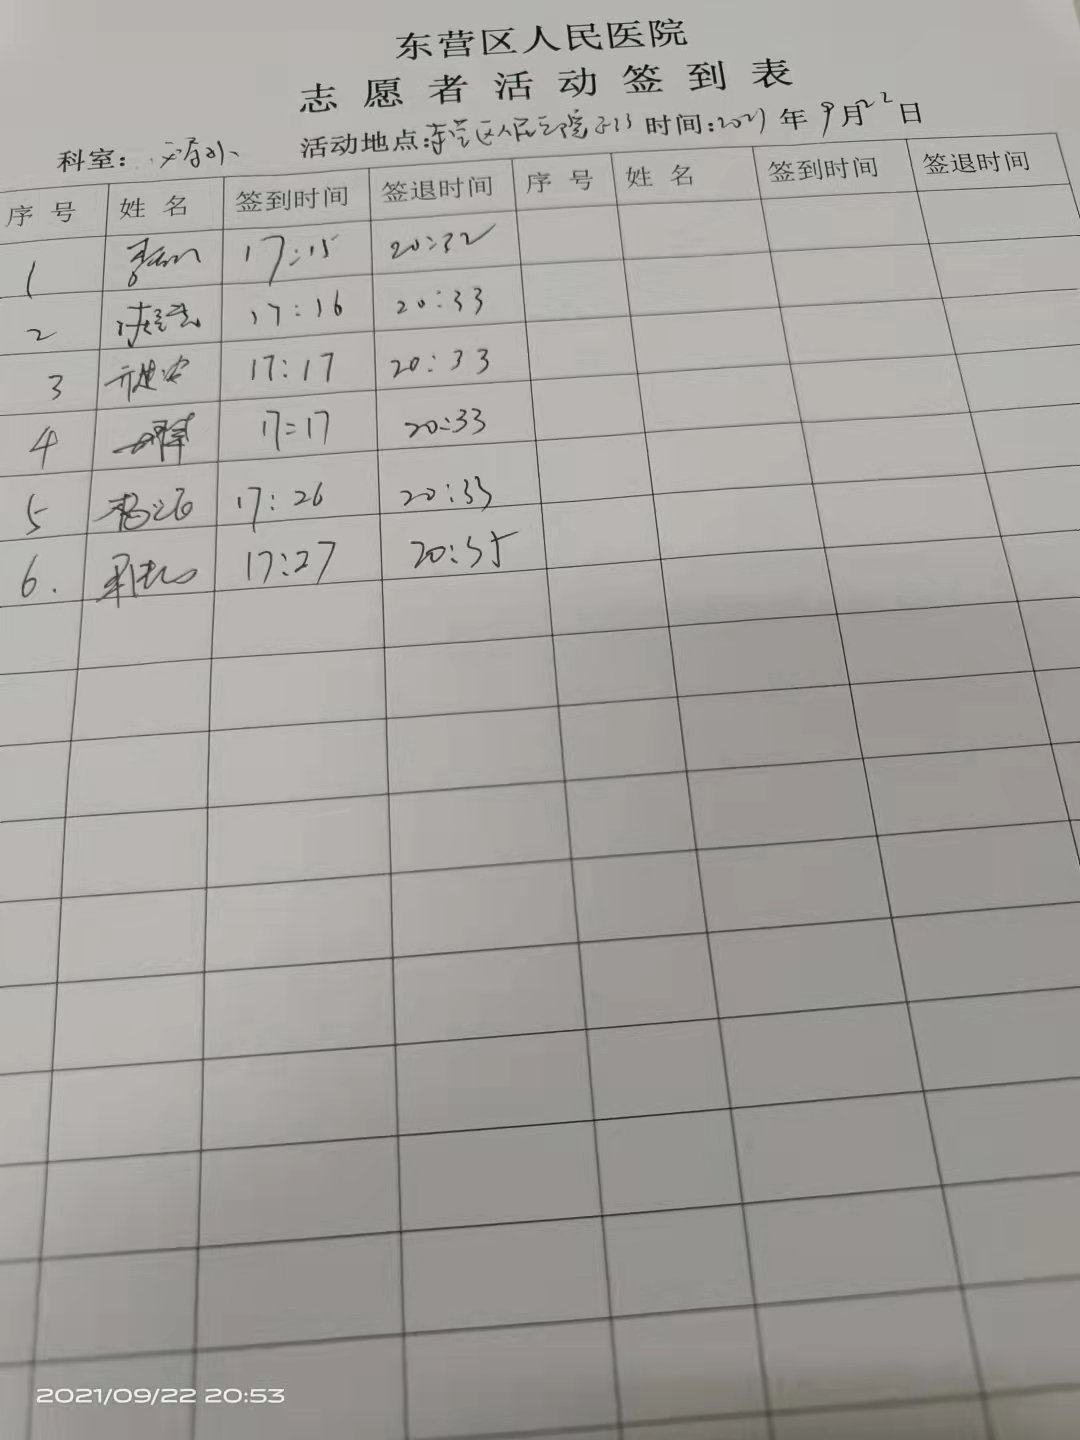 东营区人民医院
志愿者活动签到表
科室: 活动地点:东营区人民医院 时间:2021年9月22日
序号 姓名 签到时间 签退时间 序号 姓名 签到时间 签退时间
1 17:15 20:32
2 17:16 20:33
3 17:17 20:33
4 17:17 20:33
5 17:26 20:33
6. 17:27 20:35
2021/09/22 20:53